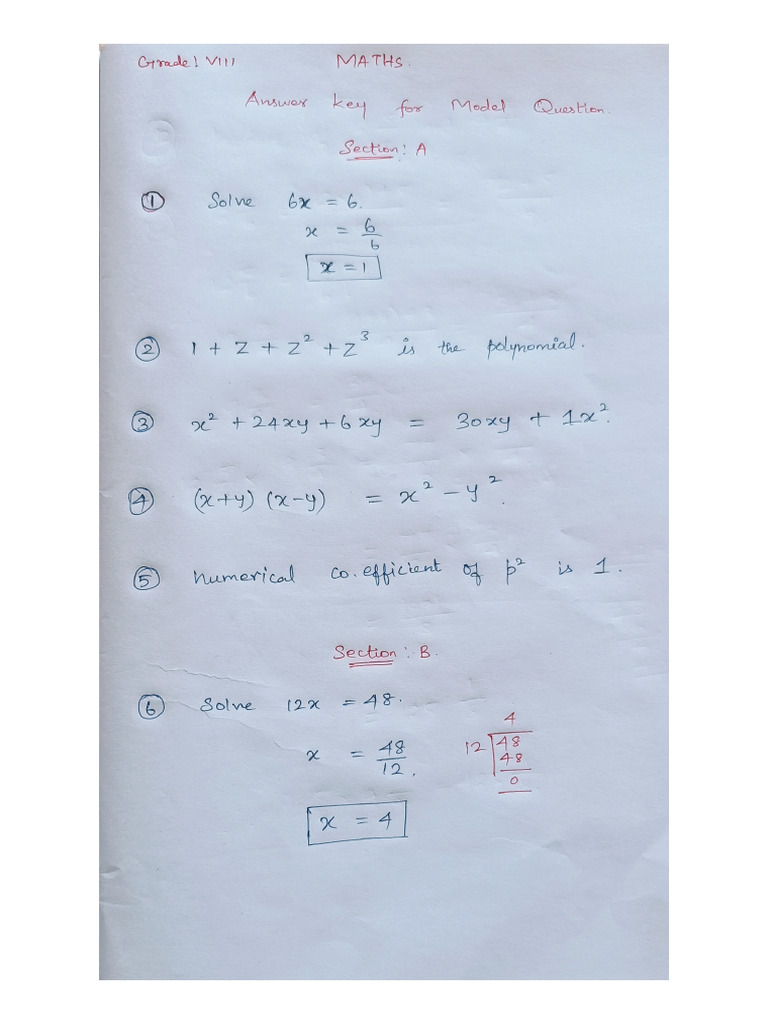 Grade: VIII MATHS.
Answer key for Model Question.
Section: A
① Solve 6x = 6.
x = 6/6
x = 1
② 1 + Z + Z² + Z³ is the polynomial.
③ x² + 24xy + 6xy = 30xy + 1x².
④ (x+y) (x-y) = x² - y².
⑤ Numerical co.efficient of p² is 1.
Section: B.
⑥ Solve 12x = 48.
x = 48/12.
4
12 48
48
0
x = 4